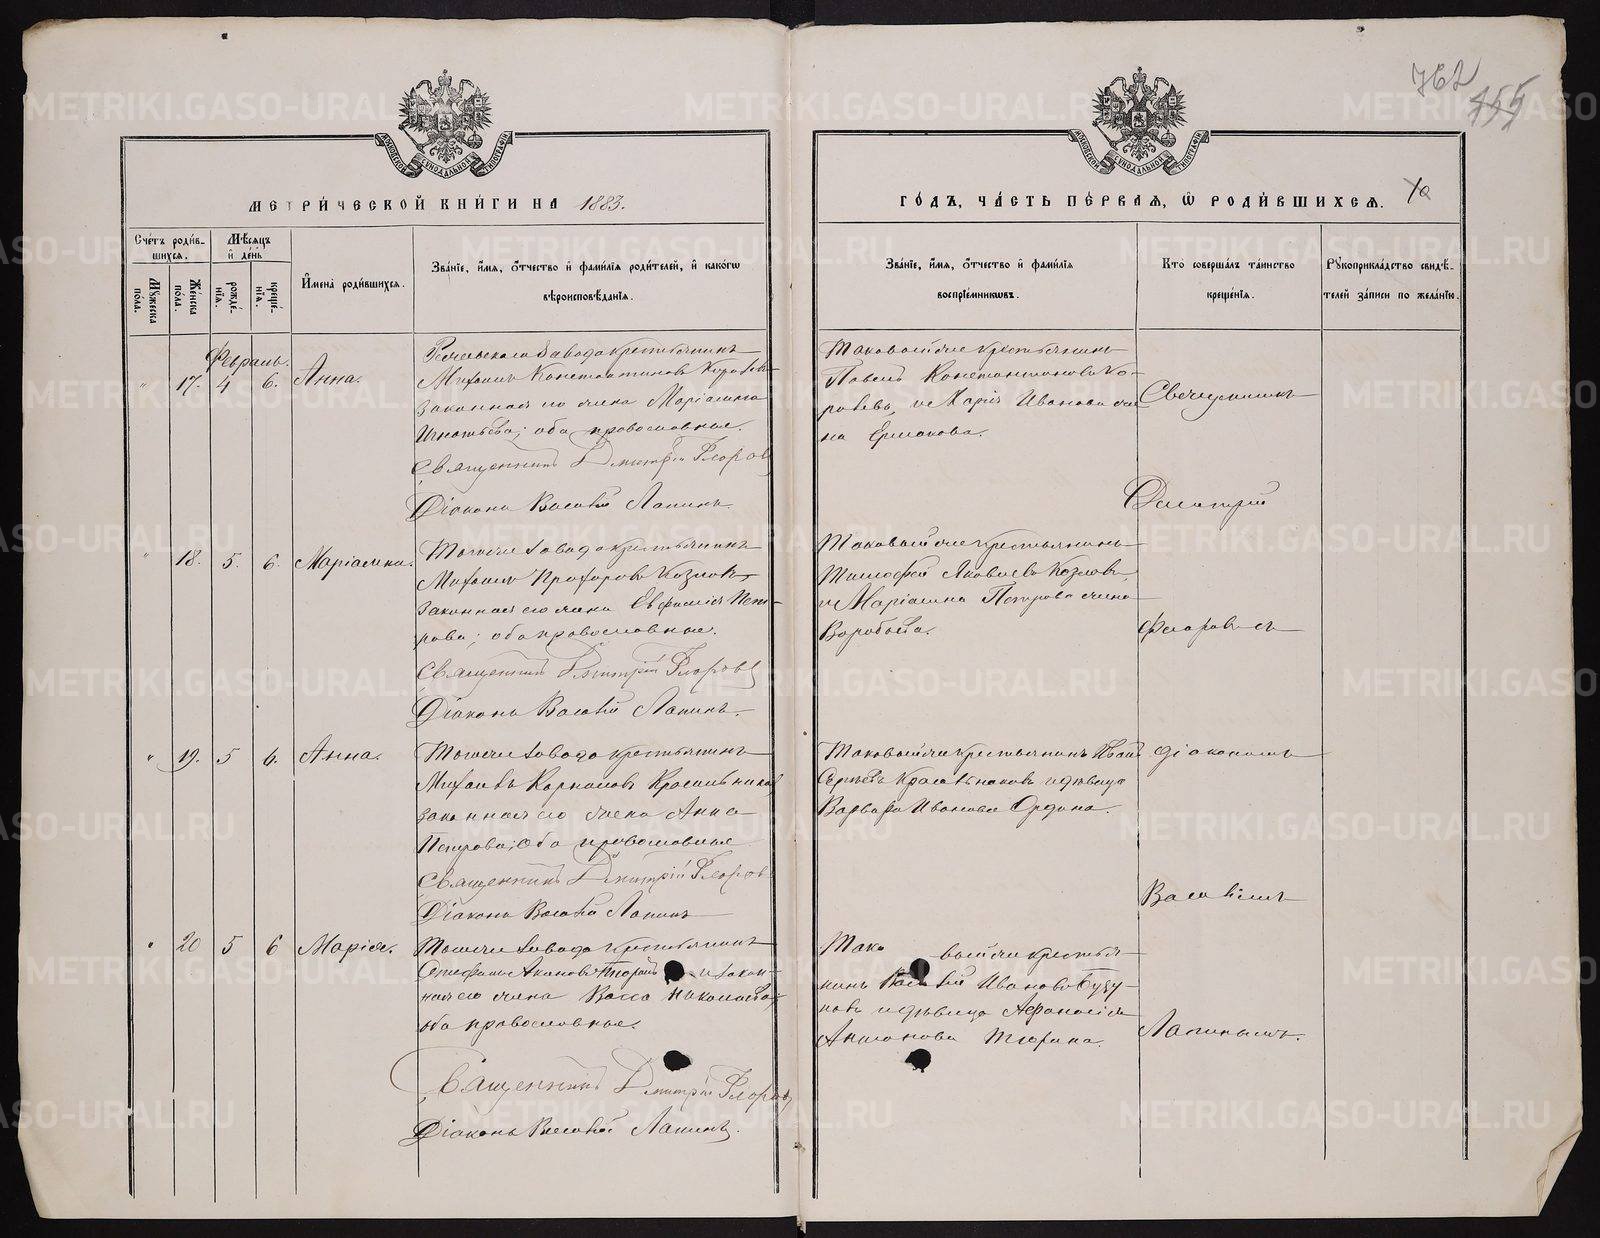 762
455
МЕТРИ́ЧЕСКОЙ КНИ́ГИ НА 1883.
ГО́ДЪ, ЧА́СТЬ ПЕ́РВАЯ, Ѡ РОДИ́ВШИХСЯ.
Сче́тъ роди́в-
шихся.
Мѣ́сяцъ
и де́нь
Му́жеска
пола.
Же́нска
пола.
рожде́-
нїя.
креще́-
нїя.
И҆мена̀ роди́вшихся.
Зва́нїе, и҆́мя, ѻ҆́тчество и҆ фами́лїя роди́телей, и҆ како́гѡ
вѣроисповѣ́данїя.
Зва́нїе, и҆́мя, ѻ҆́тчество и҆ фами́лїя
воспрїе́мникѡвъ.
Кто̀ соверша́лъ та́инство
креще́нїя.
Рꙋкоприкла́дство свидѣ́-
телей за́писи по жела́нїю.
Февраль.
" 17. 4 6. Анна.
завода крестьянинъ
Михаилъ Константиновъ
законная его жена Маріамна
Игнатьева; оба православные.
Священникъ Димитрій Флоровъ
Діаконъ Василій Лапинъ.
Таковой же крестьянинъ
Павелъ Константиновъ Ко-
ровъ, и Марія Иванова же-
на Ермакова.
Священникъ
Димитрій
" 18. 5. 6. Маріамна.
Тогоже завода крестьянинъ
Михаилъ Прохоровъ Козловъ,
законная его жена Евфимія Пет-
рова; оба православные.
Священникъ Димитрій Флоровъ
Діаконъ Василій Лапинъ.
Таковой же крестьянинъ
Тимофей Яковлевъ Козловъ,
и Маріамна Петрова жена
Воробьева.
Флоровъ съ
" 19. 5 6. Анна.
Тогоже завода крестьянинъ
Михаилъ Карповъ Красильниковъ
законная его жена Анна
Петрова; оба православные
Священникъ Димитрій Флоровъ
Діаконъ Василій Лапинъ
Таковой же крестьянинъ Иванъ
Сергѣевъ Красильниковъ и дѣвица
Варвара Иванова
діакономъ
Василіемъ
" 20 5 6 Марія.
Тогоже завода крестьянинъ
Стефанъ и закон-
ная его жена Васса Николаева;
оба православные.
Священникъ Димитрій Флоровъ
Діаконъ Василій Лапинъ.
Тако вой же крестья-
нинъ Василій Ивановъ
и дѣвица Афанасія
Антонова Тюрина.
Лапинымъ.
METRIKI.GASO-URAL.RU